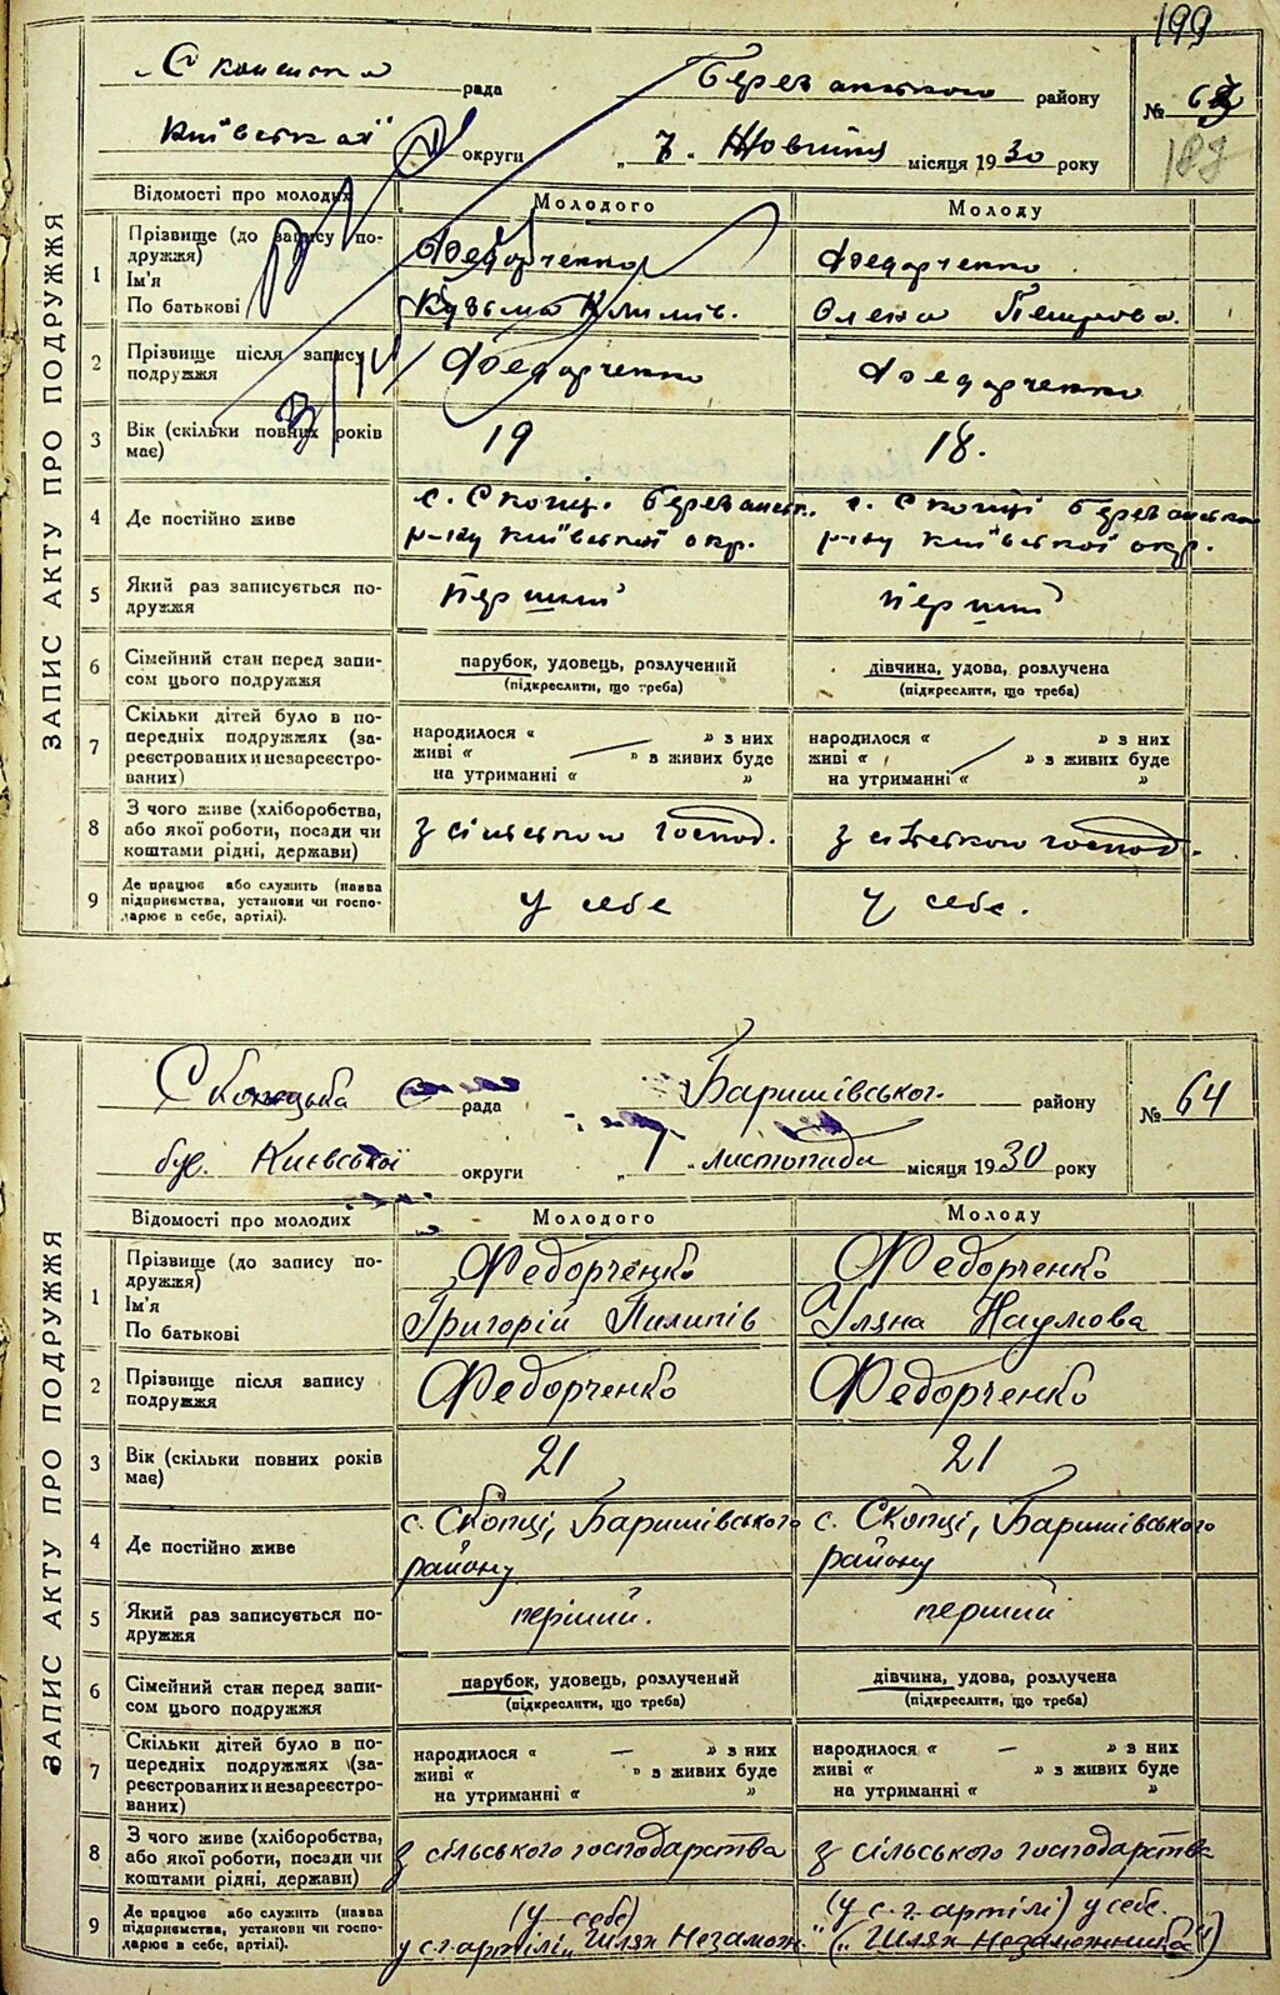 199
рада
Березанського району
№ 63
187
Київської округи
„ 7 „ Жовтня місяця 1930 року
ЗАПИС АКТУ ПРО ПОДРУЖЖЯ
Відомості про молодих
Молодого
Молоду
1
Прізвище (до запису по-
дружжя)
Ім'я
По батькові
Федорченко
Кузьма Климів.
Федорченко
Олена Петрова.
2
Прізвище після запису
подружжя
Федорченко
Федорченко
3
Вік (скільки повних років
має)
19
18.
4
Де постійно живе
с. Скопці Березанськ.
р-ну Київської окр.
с. Скопці Березанськ
р-ну Київської окр.
5
Який раз записується по-
дружжя
Перший
Перший
6
Сімейний стан перед запи-
сом цього подружжя
парубок, удовець, розлучений
(підкреслити, що треба)
дівчина, удова, розлучена
(підкреслити, що треба)
7
Скільки дітей було в по-
передніх подружжях (за-
реєстрованих и незареєстро-
ваних)
народилося « — » з них
живі « » з живих буде
на утриманні « »
народилося « — » з них
живі « » з живих буде
на утриманні « »
8
З чого живе (хліборобства,
або якої роботи, посади чи
коштами рідні, держави)
з сільського господ.
з сільського господ.
9
Де працює або служить (назва
підприємства, установи чи госпо-
дарює в себе, артілі).
у себе
у себе.
Скопецька С рада
Баришівського району
№ 64
був. Київської округи
„ 7 „ листопада місяця 1930 року
ЗАПИС АКТУ ПРО ПОДРУЖЖЯ
Відомості про молодих
Молодого
Молоду
1
Прізвище (до запису по-
дружжя)
Ім'я
По батькові
Федорченко
Григорій Пилипів
Федорченко
Уляна Наумова
2
Прізвище після запису
подружжя
Федорченко
Федорченко
3
Вік (скільки повних років
має)
21
21
4
Де постійно живе
с. Скопці, Баришівського
району
с. Скопці, Баришівського
району
5
Який раз записується по-
дружжя
перший.
перший
6
Сімейний стан перед запи-
сом цього подружжя
парубок, удовець, розлучений
(підкреслити, що треба)
дівчина, удова, розлучена
(підкреслити, що треба)
7
Скільки дітей було в по-
передніх подружжях (за-
реєстрованих и незареєстро-
ваних)
народилося « — » з них
живі « » з живих буде
на утриманні « »
народилося « — » з них
живі « » з живих буде
на утриманні « »
8
З чого живе (хліборобства,
або якої роботи, посади чи
коштами рідні, держави)
з сільського господарства
з сільського господарства
9
Де працює або служить (назва
підприємства, установи чи госпо-
дарює в себе, артілі).
(у себе)
у с.г. артілі „Шлях Незамож.“
(у с.г. артілі) у себе.
(„Шлях Незаможника“)